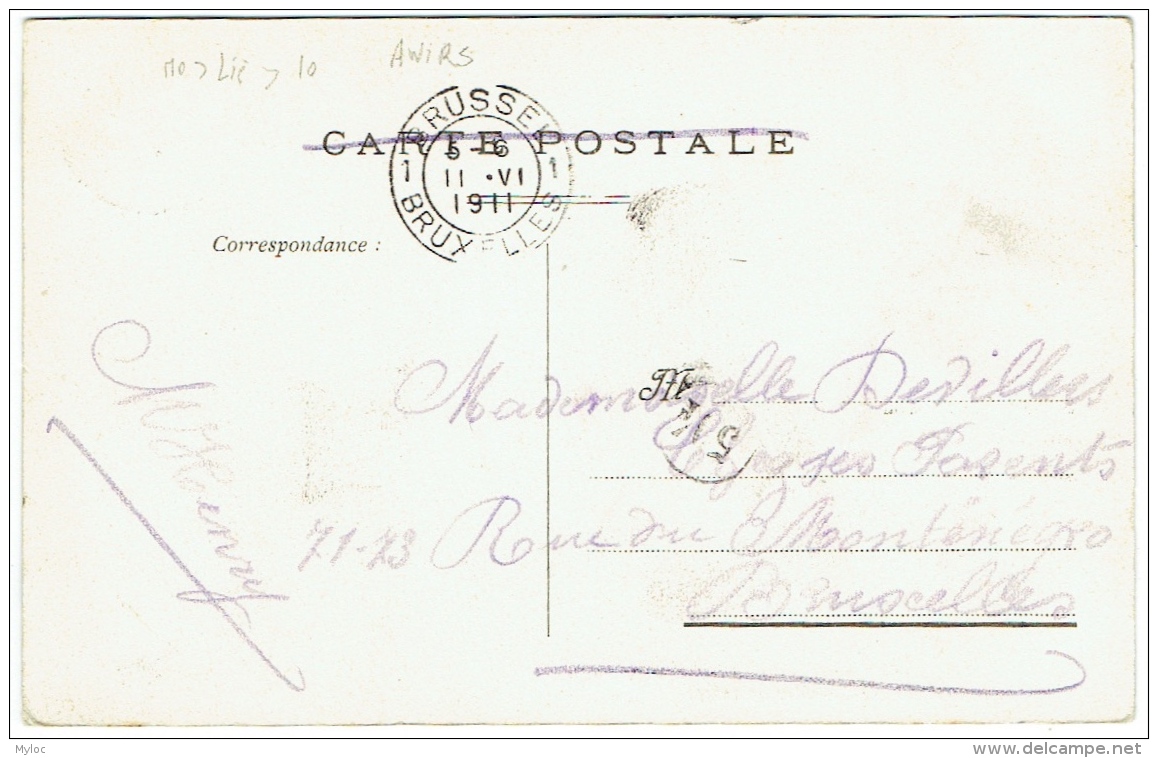 MO > LIE > 10 AWIRS
CARTE POSTALE
BRUSSEL
1 5-6 1
11 • VI
1911
BRUXELLES
Correspondance :
Mademoiselle Devillers
Chez ses Parents
71-73 Rue du Monténégro
Bruxelles
M Henry
Myloc
www.delcampe.net